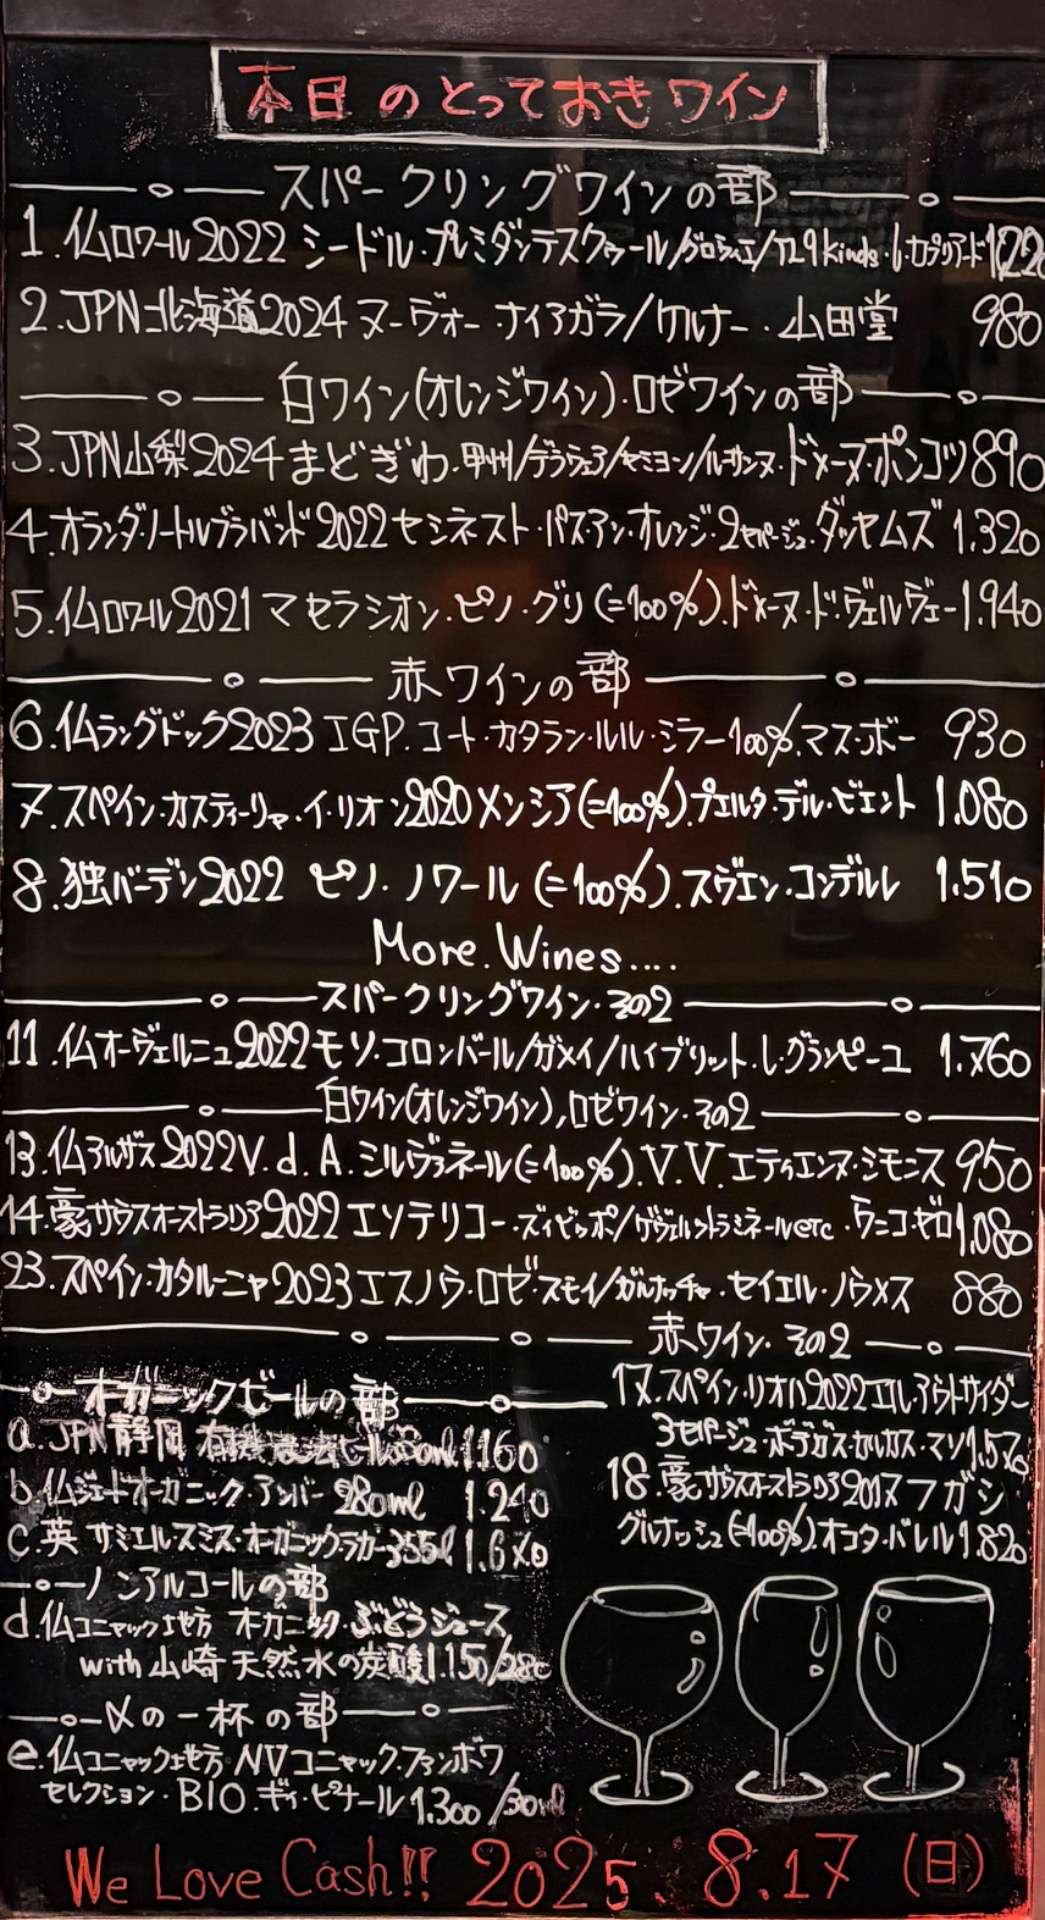 本日のとっておきワイン
スパークリングワインの部
1.仏ロワール2022 シードル・プルミダンテスクゥール/グロライエ/たり9kinds・ル・カプリアード122
2.JPN北海道2024 ヌーヴォー・ナイアガラ/ケルナー・山田堂 980
白ワイン(オレンジワイン)・ロゼワインの部
3.JPN山梨2024まどぎわ・甲州/デラウェア/セミヨン/ルサンヌ・ドメーヌ・ポンコツ890
4.オランダ・ノートルブラバンド2022セシネスト・パス・アン・オレンジ・2セパージュ・ダッセムズ 1.320
5.仏ロワール2021 マセラシオン・ピノ・グリ(=100%).ドメーヌ・ド・ヴェルヴェー1.940
赤ワインの部
6.仏ラングドック2023 IGP.コート・カタラン・ルル・シラー100%.マス・ボー 930
7.スペイン・カスティーリャ・イ・リオン2020メンシア(=100%).プエルタ・デル・ビエント 1.080
8.独バーデン2022 ピノ・ノワール(=100%).スヴェン・コンデルレ 1.510
More.Wines....
スパークリングワイン・その2
11.仏オーヴェルニュ2022モソ・コロンバール/ガメイ/ハイブリット・レ・グランピーユ 1.760
白ワイン(オレンジワイン),ロゼワイン・その2
13.仏アルザス2022V.d.A.シルヴァネール(=100%).V.V.エティエンヌ・シモニス950
14.豪サウスオーストラリア2022エソテリコー・ズィビッポ/ゲヴェルツトラミネールetc・ウニコ・ゼロ1.080
23.スペイン・カタルーニャ2023エスノウ・ロゼ・スモイ/ガルナッチャ・セイエル・ノウメス 880
赤ワイン・その2
17.スペイン・リオハ2022エル・アウトサイダー
3セパージュ・ボデガス・セルカス・マソ1.570
18.豪サウスオーストラリア2017フガシ
グルナッシュ(=100%).オコタ・バレル1.820
オーガニックビールの部
a.JPN静岡 有機農法ビール 1.160
b.仏ジェードオーガニック・アンバー 280ml 1.240
c.英 サミエルスミス・オーガニックラガー355l 1.6
ノンアルコールの部
d.仏コニャック地方 オーガニック・ぶどうジュース
with 山崎 天然水の炭酸 1.150/280
〆の一杯の部
e.仏コニャック地方・NVコニャック・ファンボワ
セレクション・BIO.ギィ・ピナール 1.300/30ml
We Love Cash!! 2025.8.17(日)